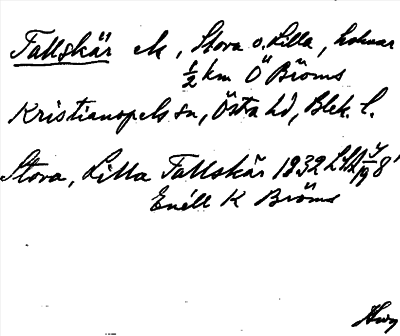 Tallskär ek, Stora o. Lilla, holmar
½ km Ö Bröms
Kristianopels sn, Östra hd, Blek. l.
Stora, Lilla Tallskär 1832
Enéll K Bröms